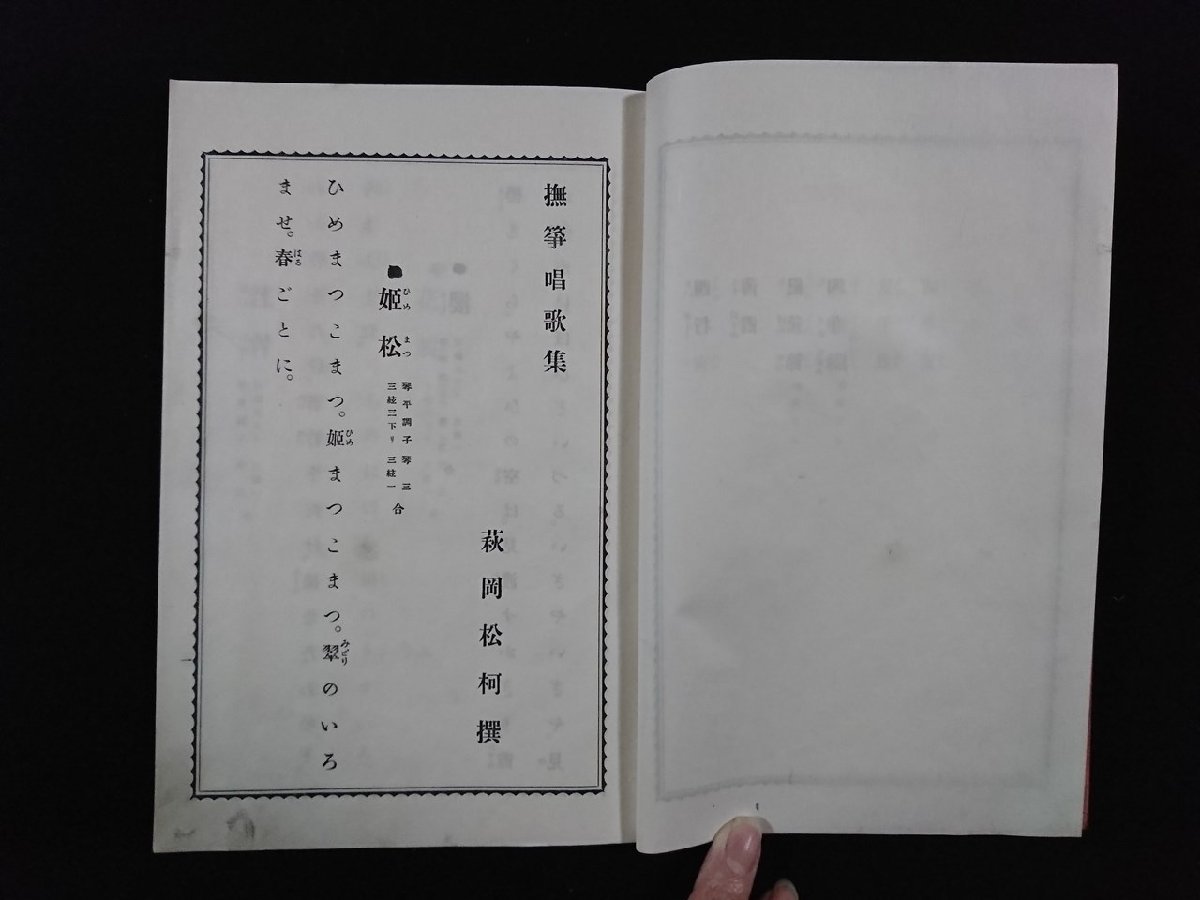 撫箏唱歌集
萩岡松柯撰
●姫松
ひめまつ
琴平調子 琴三
三絃二下リ 三絃一
合
ひめまつこまつ。姫まつこまつ。翠のいろ
ひめ
みどり
ませ。春ごとに。
はる
一